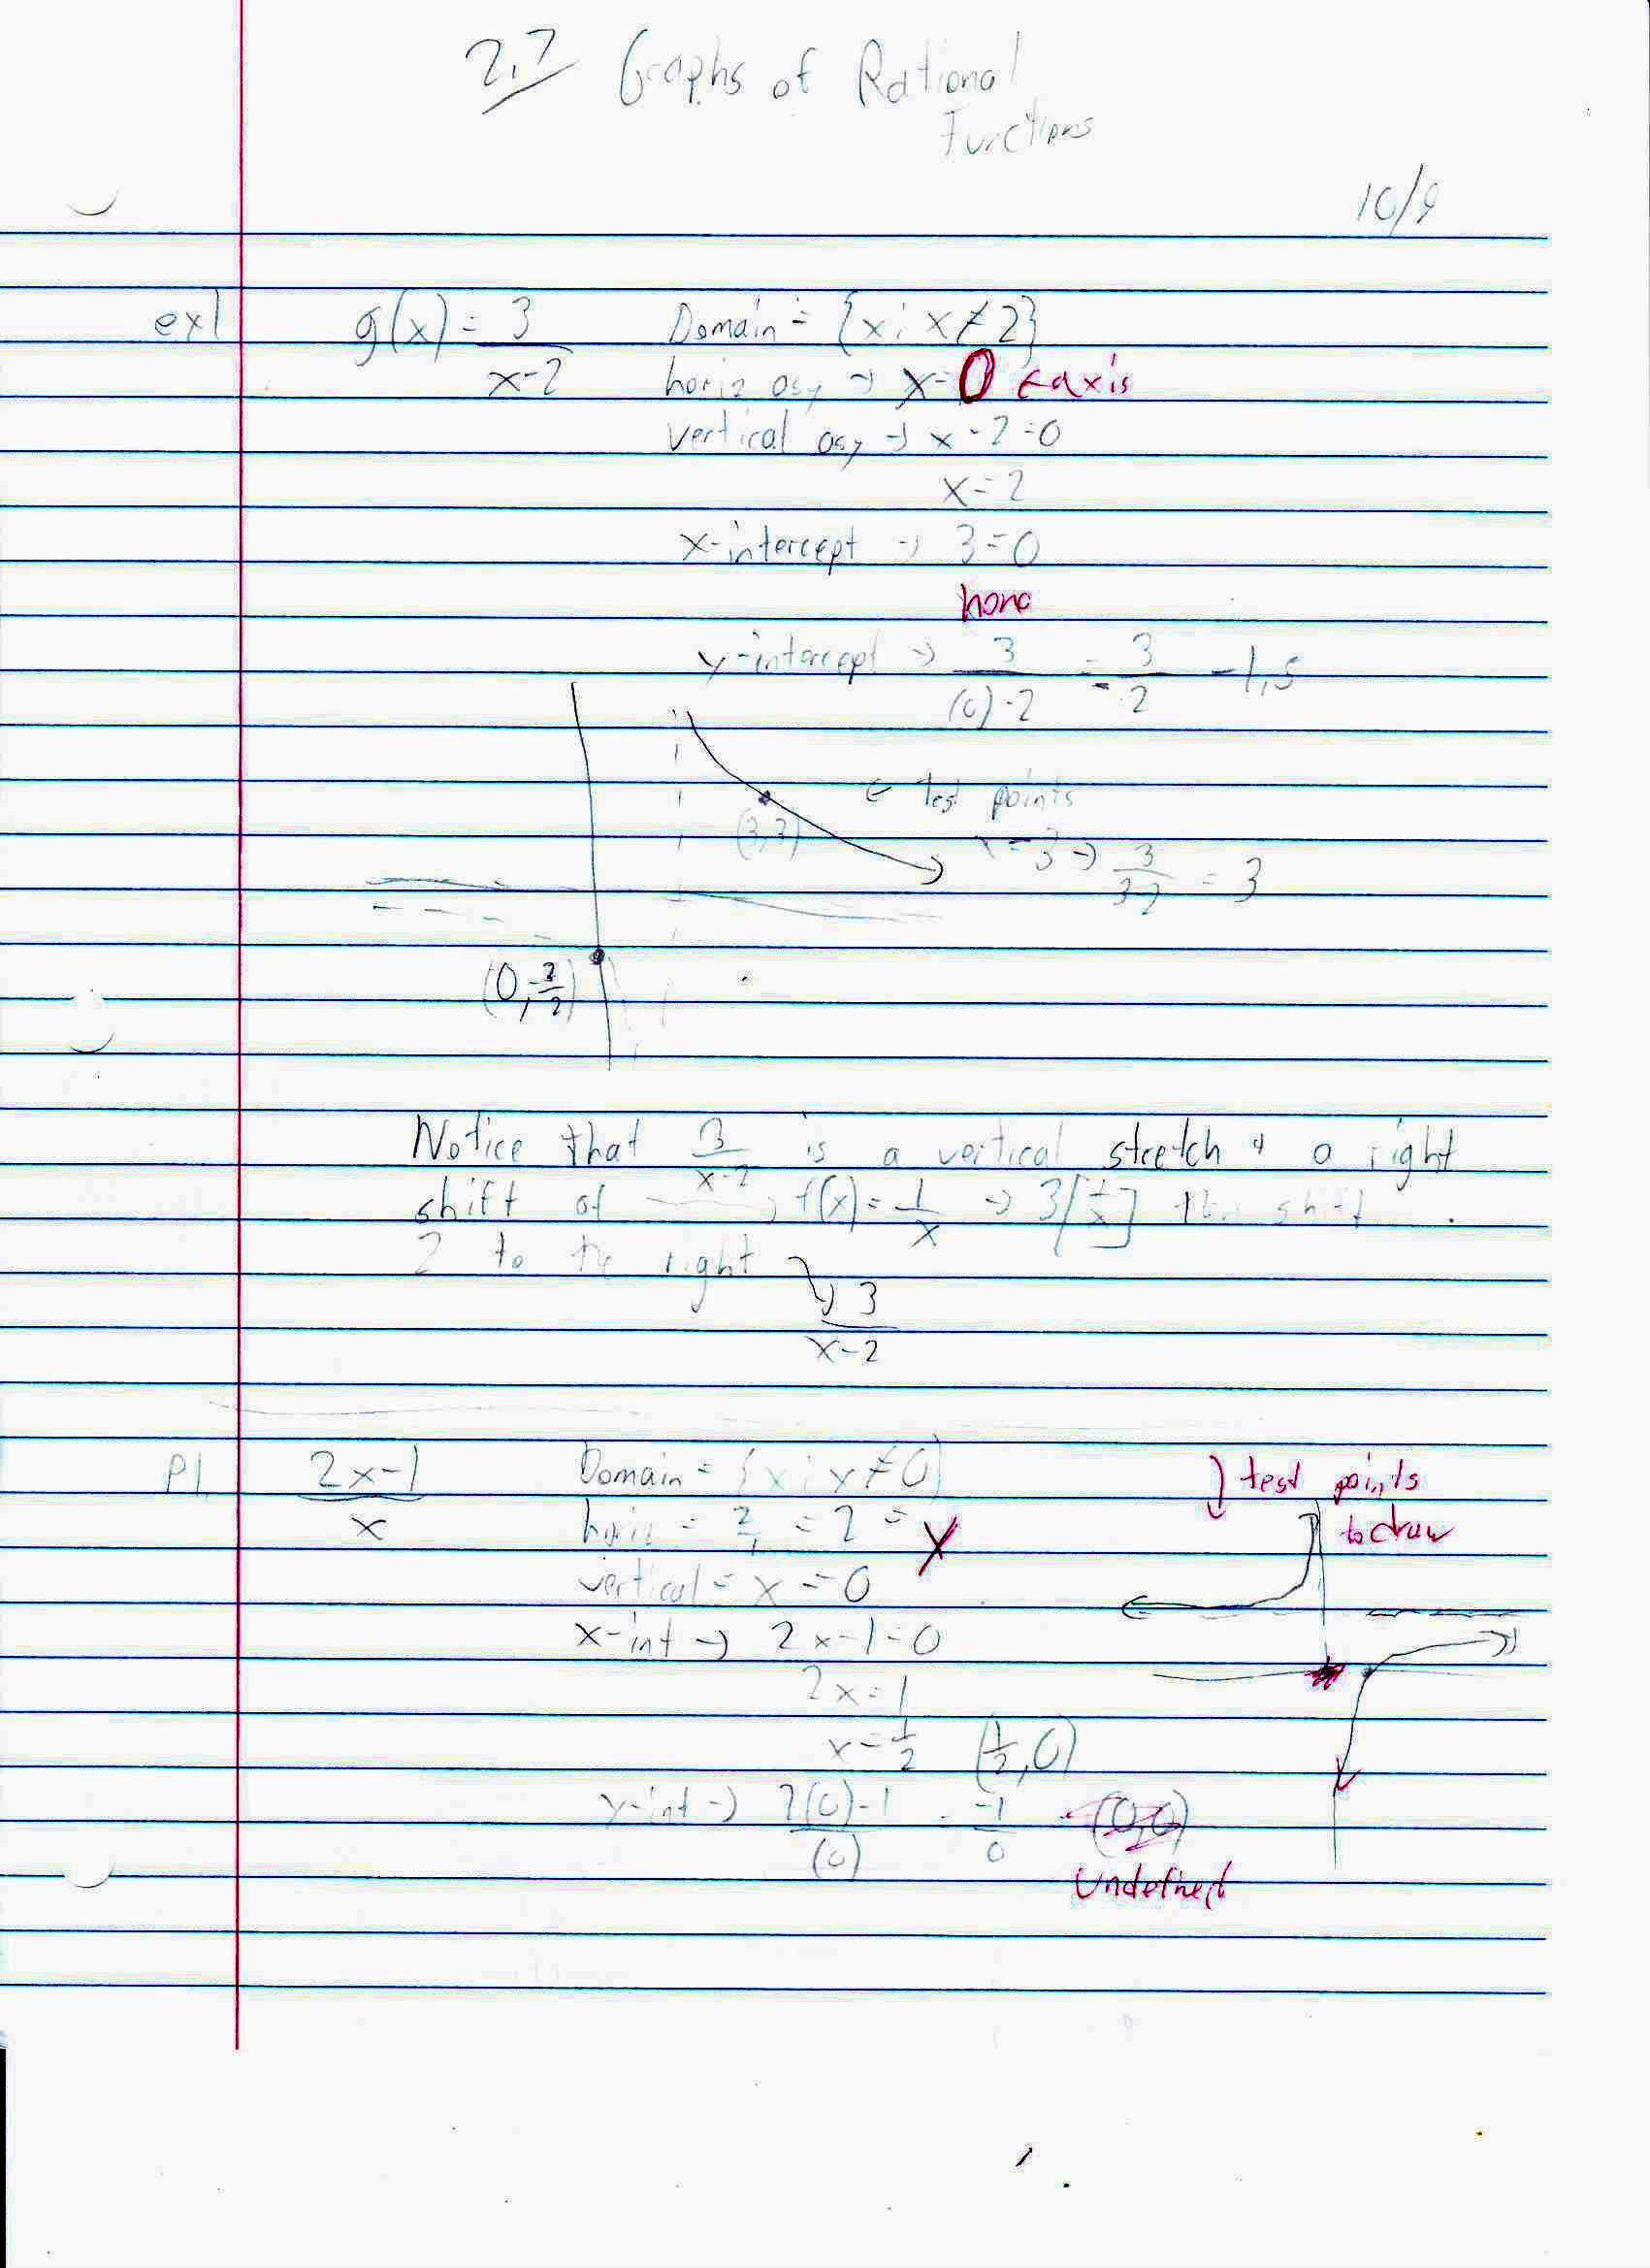 2.7 Graphs of Rational
Functions
10/9
ex1 g(x) = 3/(x-2) Domain = {x: x≠2}
horiz asy → x=0 ← axis
vertical asy → x-2=0
x=2
x-intercept → 3=0
none
y-intercept → 3/((0)-2) = 3/-2 -1.5
← test points
(3,3) x=3 → 3/(3-2) = 3
(0,-3/2)
Notice that 3/(x-2) is a vertical stretch & a right
shift of f(x)=1/x → 3[1/x] then shift
2 to the right
→ 3/(x-2)
P1 (2x-1)/x Domain = {x: x≠0}
horiz = 2/1 = 2 = y
vertical = x=0
x-int → 2x-1=0
2x=1
x=1/2 (1/2,0)
y-int → (2(0)-1)/(0) = -1/0 (0,0)
undefined
test points
to draw